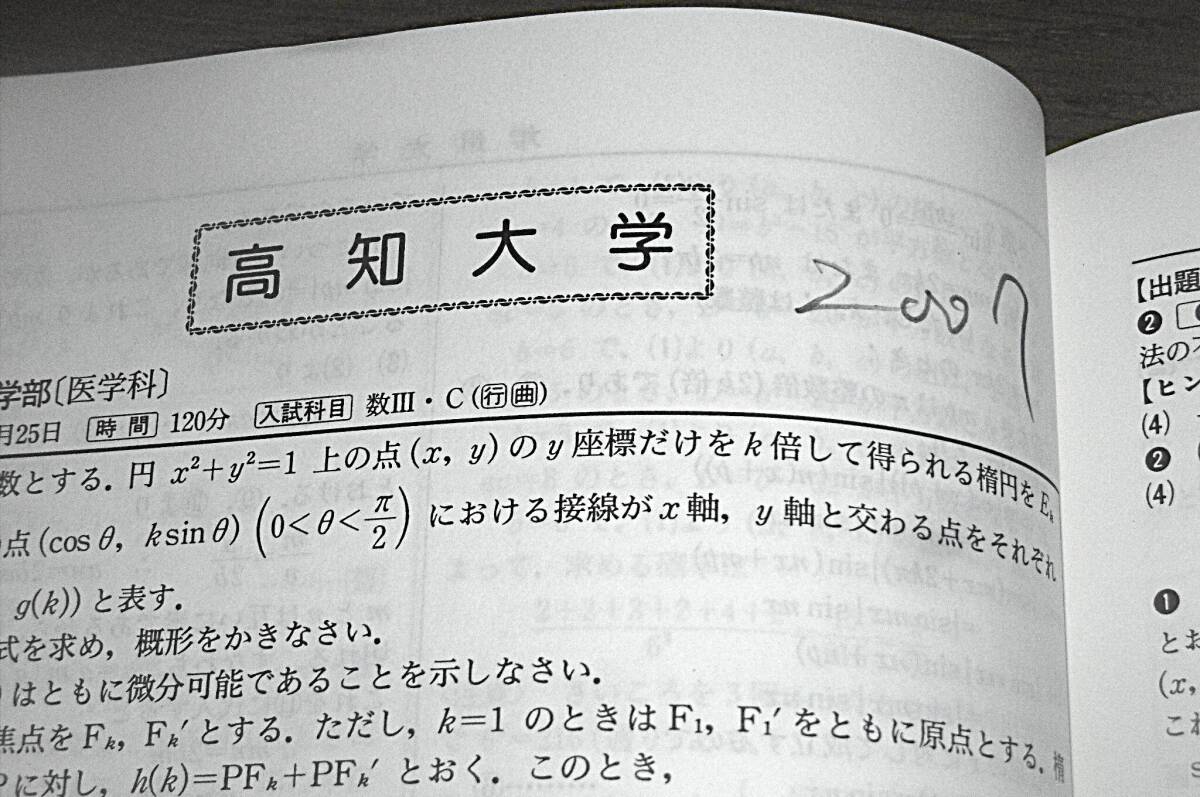 高知大学
2007
学部〔医学科〕
月25日 時間 120分 入試科目 数Ⅲ・C(行曲)
数とする．円 x²+y²=1 上の点(x, y)の y 座標だけを k 倍して得られる楕円を Eₖ
点(cos θ, k sin θ) (0<θ<π/2) における接線が x 軸，y 軸と交わる点をそれぞれ
g(k))と表す．
式を求め，概形をかきなさい．
)はともに微分可能であることを示しなさい．
焦点を Fₖ, Fₖ′ とする．ただし，k=1 のときは F₁, F₁′ をともに原点とする．楕
Pに対し，h(k)=PFₖ+PFₖ′ とおく．このとき，
【出題
❷
法の
【ヒン
(4)
❷
(4)
❶
とお
(x,
これ
s